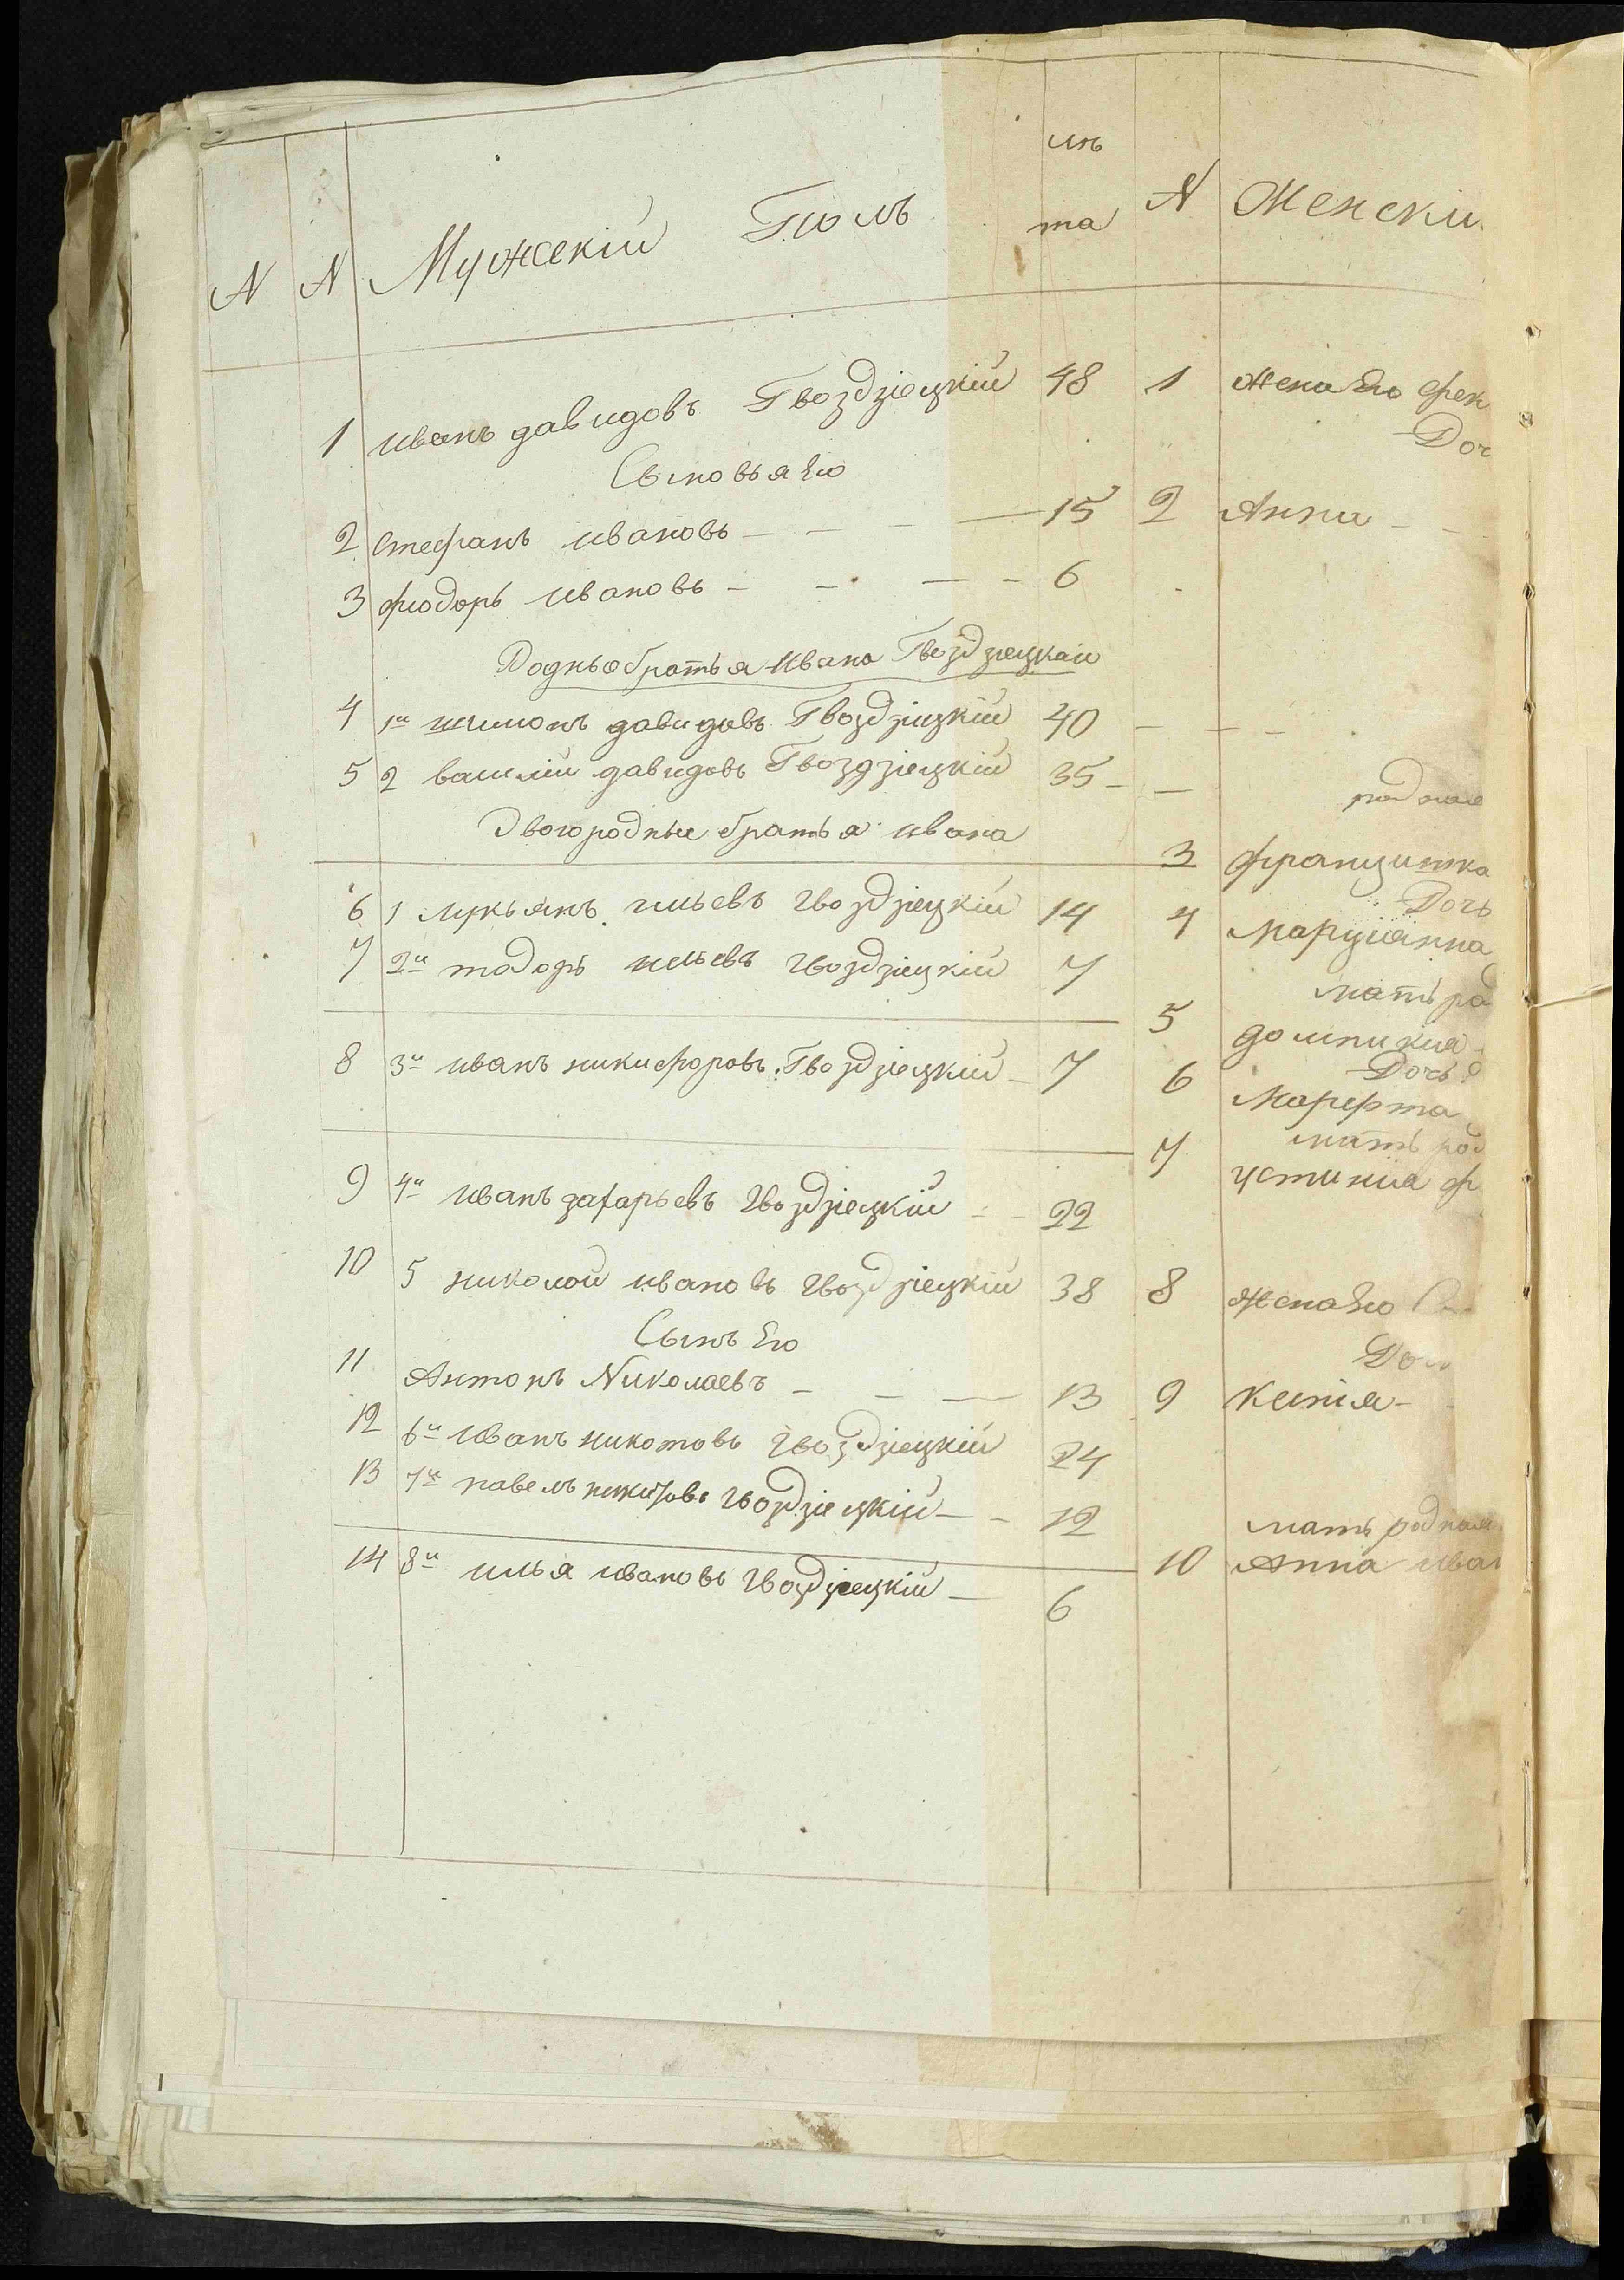 лѣ
та
N N Мужескій Полъ N Женски
1 иванъ давидовъ Гвоздзіецкій 48 1 жена Его фек
Сыновья Его Доч
2 стефанъ ивановъ — — — — 15 2 Анна — —
3 фіодоръ ивановъ — — — — 6
Родныя братья ивана Гвоздзіецкаго
4 1й шимонъ давидовъ Гвоздзіцкій 40 — — —
5 2 василій давидовъ Гвоздзіецкій 35 — —
родная
Двоюродные братья ивана
3 францишка
Дочь
6 1 лукьянъ ильевъ гвоздзіецкій 14 4 марціянна
7 2й тодоръ ильевъ гвоздзіецкій 7
мать род
5 домникия
8 3й иванъ никифоровъ Гвоздзіецкій — 7 6 Дочь
Марфта
мать род
7 устиния ф
9 4й иванъ захарьевъ гвоздзіецкій — — 22
10 5 николай ивановъ гвоздзіецкій 38 8 жена Его
Сынъ Его Доч
11 Антонъ Николаевъ — — — 13 9 Ксенія —
12 6й иванъ никитовъ гвоздзіецкій 24
13 7й павелъ никитовъ гвоздзіецкій — — 12
мать родная
10 Анна ива
14 8й илья ивановъ гвоздзіецкій — 6